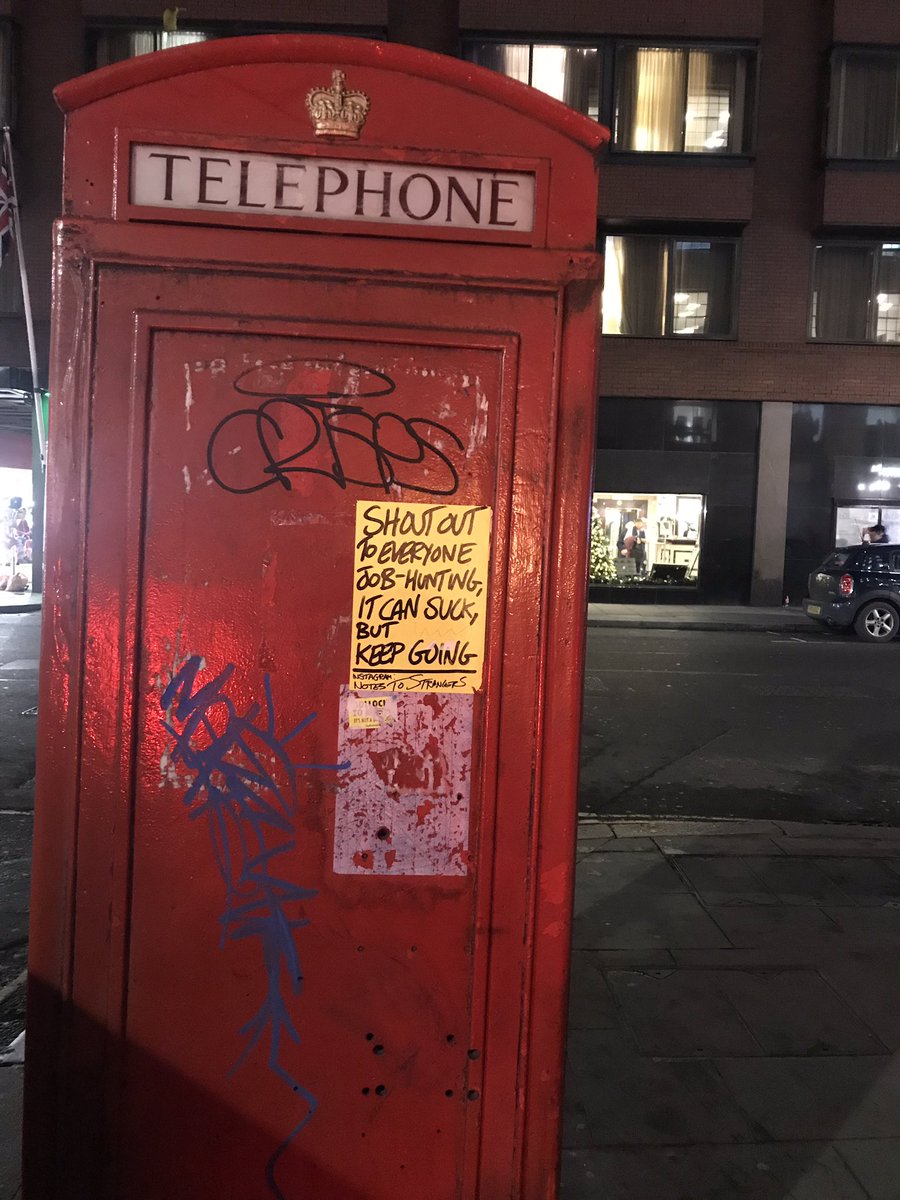 TELEPHONE
SHOUT OUT
TO EVERYONE
JOB-HUNTING,
IT CAN SUCK,
BUT
KEEP GOING
INSTAGRAM:
NOTES TO STRANGERS